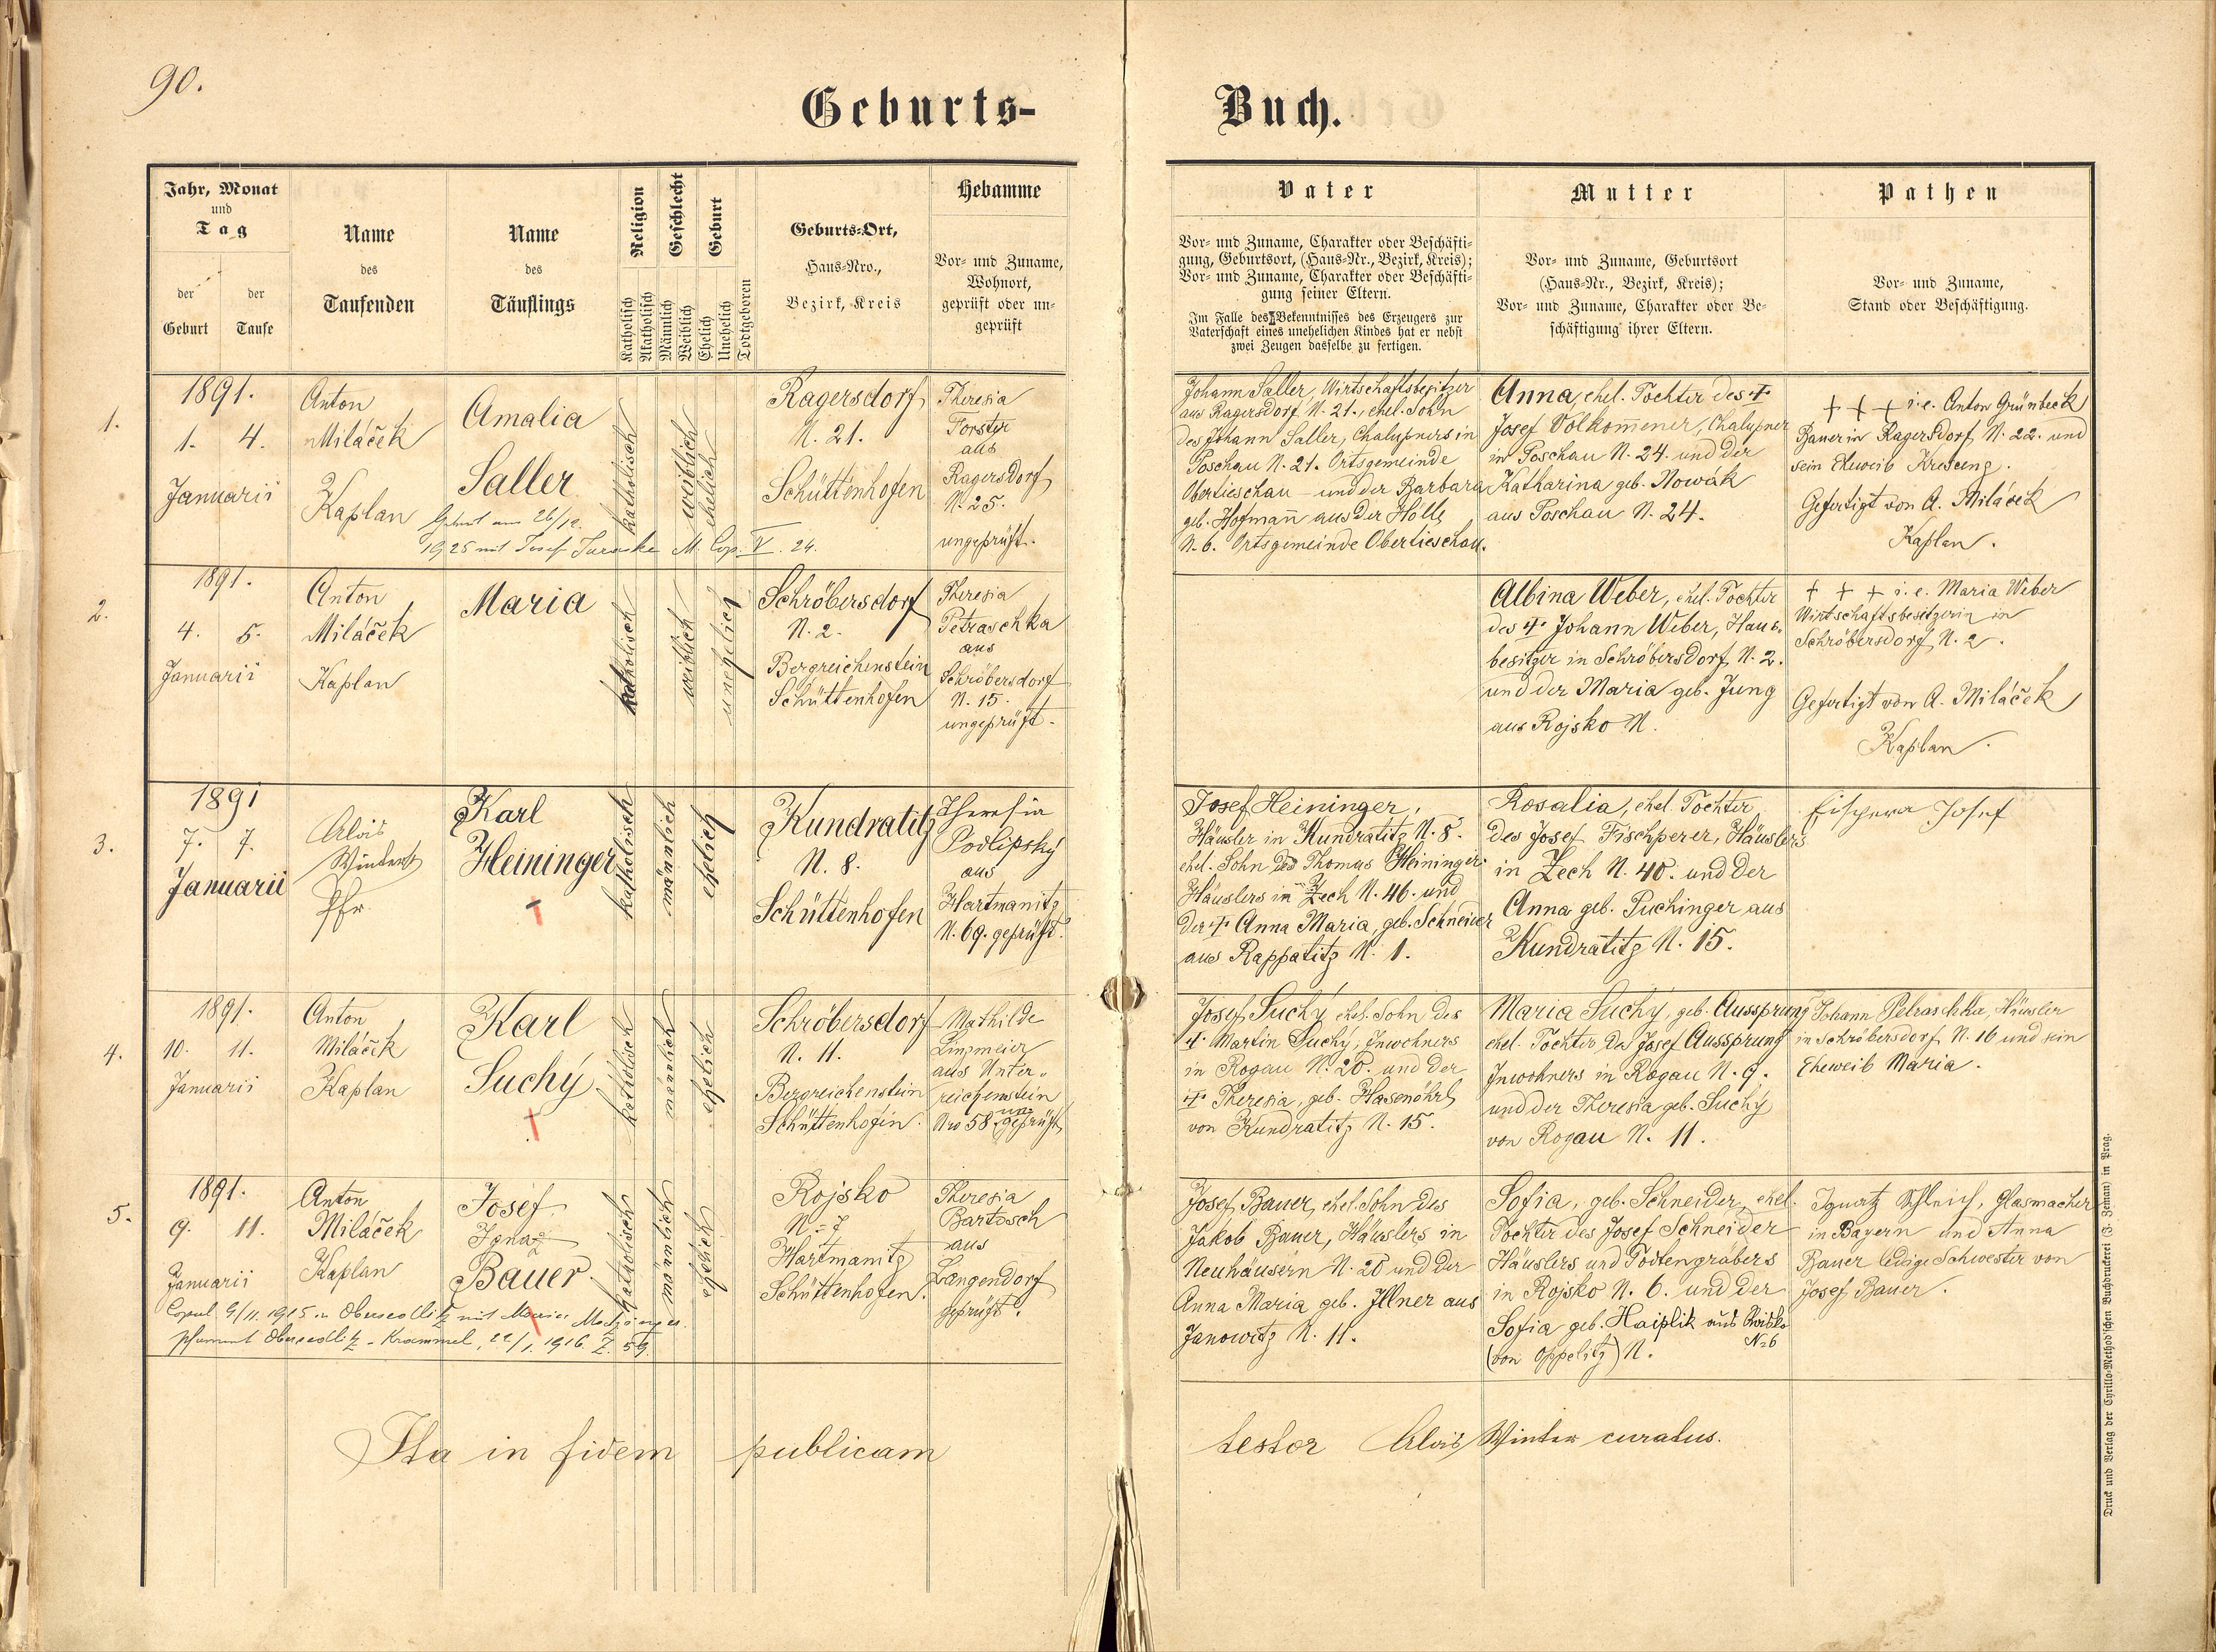 90.
Geburts-
Buch.
Jahr, Monat
und
Tag
der
Geburt
der
Taufe
Name
des
Taufenden
Name
des
Täuflings
Religion
Katholisch
Akatholisch
Geschlecht
Männlich
Weiblich
Geburt
Ehelich
Unehelich
Todtgeboren
Geburts-Ort,
Haus-Nro.,
Bezirk, Kreis
Hebamme
Vor- und Zuname,
Wohnort,
geprüft oder un-
geprüft
Vater
Vor- und Zuname, Charakter oder Beschäfti-
gung, Geburtsort, (Haus-Nr., Bezirk, Kreis);
Vor- und Zuname, Charakter oder Beschäfti-
gung seiner Eltern.
Im Falle des Bekenntnisses des Erzeugers zur
Vaterschaft eines unehelichen Kindes hat er nebst
zwei Zeugen dasselbe zu fertigen.
Mutter
Vor- und Zuname, Geburtsort
(Haus-Nr., Bezirk, Kreis);
Vor- und Zuname, Charakter oder Be-
schäftigung ihrer Eltern.
Pathen
Vor- und Zuname,
Stand oder Beschäftigung.
1.
1891.
1. 4.
Januarii
Anton
Miláček
Kaplan
Amalia
Saller
1925 mit Josef M. Cop. V. 24.
katholisch
weiblich
ehelich
Ragersdorf
N. 21.
Schüttenhofen
Theresia
Forster
aus
Ragersdorf
N. 25.
ungeprüft.
Johann Saller, Wirtschaftsbesitzer
aus Ragersdorf N. 21., ehel. Sohn
des Johann Saller, Chalupners in
Poschau N. 21. Ortsgemeinde
Obertieschau und der Barbara
geb. Hofmann aus der Hölle
N. 6. Ortsgemeinde Obertieschau.
Anna, ehel. Tochter des †
Josef Volkom̄ener, Chalupner
in Poschau N. 24. und der
Katharina geb. Nowák
aus Poschau N. 24.
+ + + i. e. Anton Grünbeck
Bauer in Ragersdorf N. 22. und
sein Eheweib Kreszenz.
Gefertigt von A. Miláček
Kaplan.
2.
1891.
4. 5.
Januarii
Anton
Miláček
Kaplan
Maria
katholisch
weiblich
unehelich
Schröbersdorf
N. 2.
Bergreichenstein
Schüttenhofen
Theresia
Petraschka
aus
Schröbersdorf
N. 15.
ungeprüft.
Albina Weber, ehel. Tochter
des † Johann Weber, Haus-
besitzer in Schröbersdorf N. 2.
und der Maria geb. Jung
aus Rojsko N.
+ + + i. e. Maria Weber
Wirtschaftsbesitzerin in
Schröbersdorf N. 2.
Gefertigt von A. Miláček
Kaplan.
3.
1891
7. 7.
Januarii
Alois
Winter
Pfr.
Karl
Heininger
†
katholisch
männlich
ehelich
Kundratitz
N. 8.
Schüttenhofen
Theresia
Podlipsky
aus
Hartmanitz
N. 69. geprüft.
Josef Heininger,
Häusler in Kundratitz N. 8.
ehel. Sohn des Thomas Heininger
Häuslers in Zech N. 46. und
der † Anna Maria, geb. Schneider
aus Rappatitz N. 1.
Rosalia, ehel. Tochter
des Josef Fischperer, Häuslers
in Zech N. 40. und der
Anna geb. Puchinger aus
Kundratitz N. 15.
Josef
4.
1891.
10. 11.
Januarii
Anton
Miláček
Kaplan
Karl
Suchý
†
katholisch
männlich
ehelich
Schröbersdorf
N. 11.
Bergreichenstein
Schüttenhofen.
Mathilde
Linzmeier
aus Unter-
reichenstein
Nro 58 ungeprüft
Josef Suchý ehel. Sohn des
† Martin Suchý, Inwohners
in Rogau N. 20. und der
† Theresia, geb. Hasenöhrl
von Kundratitz N. 15.
Maria Suchý, geb. Aussprung
ehel. Tochter des Josef Aussprung
Inwohners in Rogau N. 9.
und der Theresia geb. Suchý
von Rogau N. 11.
Johann Petraschka, Häusler
in Schröbersdorf N. 16 und sein
Eheweib Maria.
5.
1891.
9. 11.
Januarii
Anton
Miláček
Kaplan
Josef
Ignaz
Bauer
Copul. 9/11. 1915 in Obersedlitz mit Maria
Pfarramt Obersedlitz-Krammel, 22/1. 1916. Z. 59.
katholisch
männlich
ehelich
Rojsko
N= 7
Hartmanitz
Schüttenhofen.
Theresia
Bartosch
aus
Langendorf
geprüft.
Josef Bauer, ehel. Sohn des
Jakob Bauer, Häuslers in
Neuhäusern N. 20 und der
Anna Maria geb. Illner aus
Janowitz N. 11.
Sofia, geb. Schneider, ehel.
Tochter des Josef Schneider
Häuslers und Todtengräbers
in Rojsko N. 6. und der
Sofia geb. Haiplik aus Rojsko
N=6
(von Oppelitz) N.
Ignatz Schleich, Glasmacher
in Bayern und Anna
Bauer ledige Schwester von
Josef Bauer.
Ita in fidem publicam
testor Alois Winter curatus.
Druck und Verlag der Cyrillo-Method'schen Buchdruckerei (J. Zeman) in Prag.